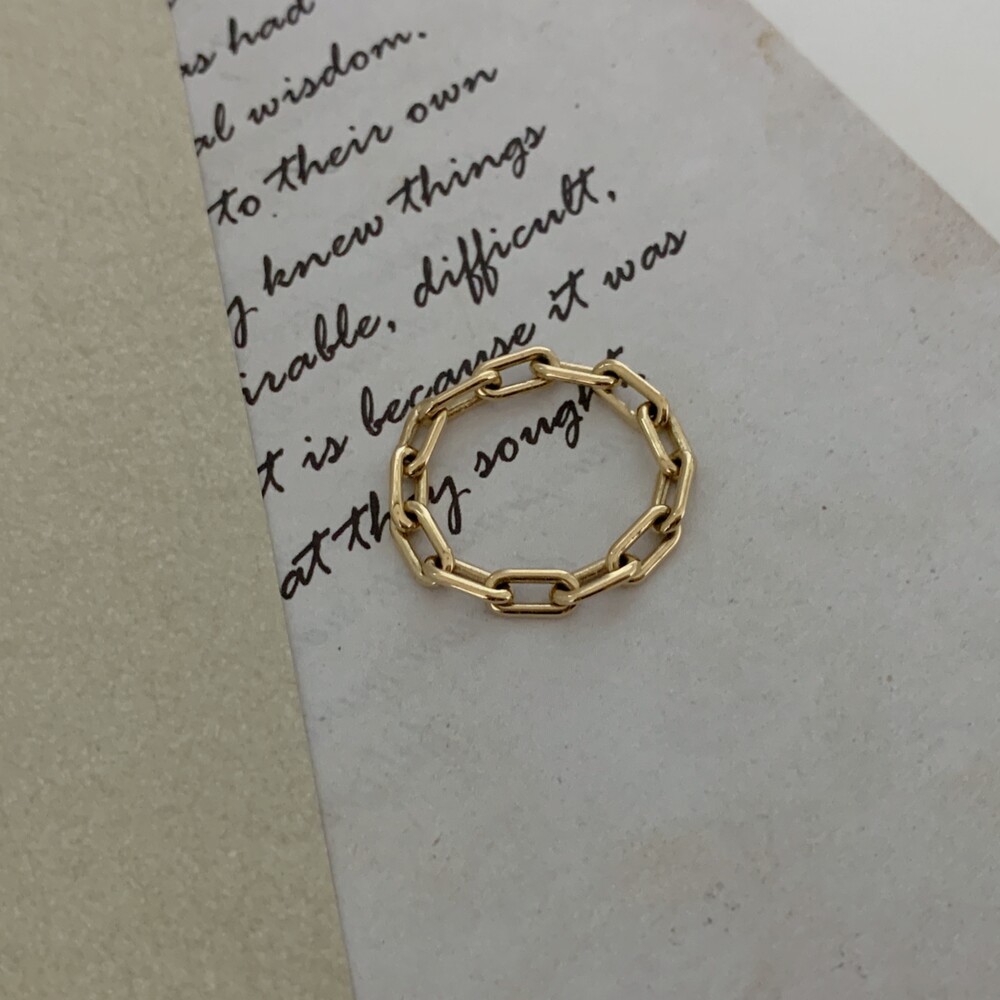 as had
al wisdom.
to their own
y knew things
irable, difficult,
t is because it was
at they sought.